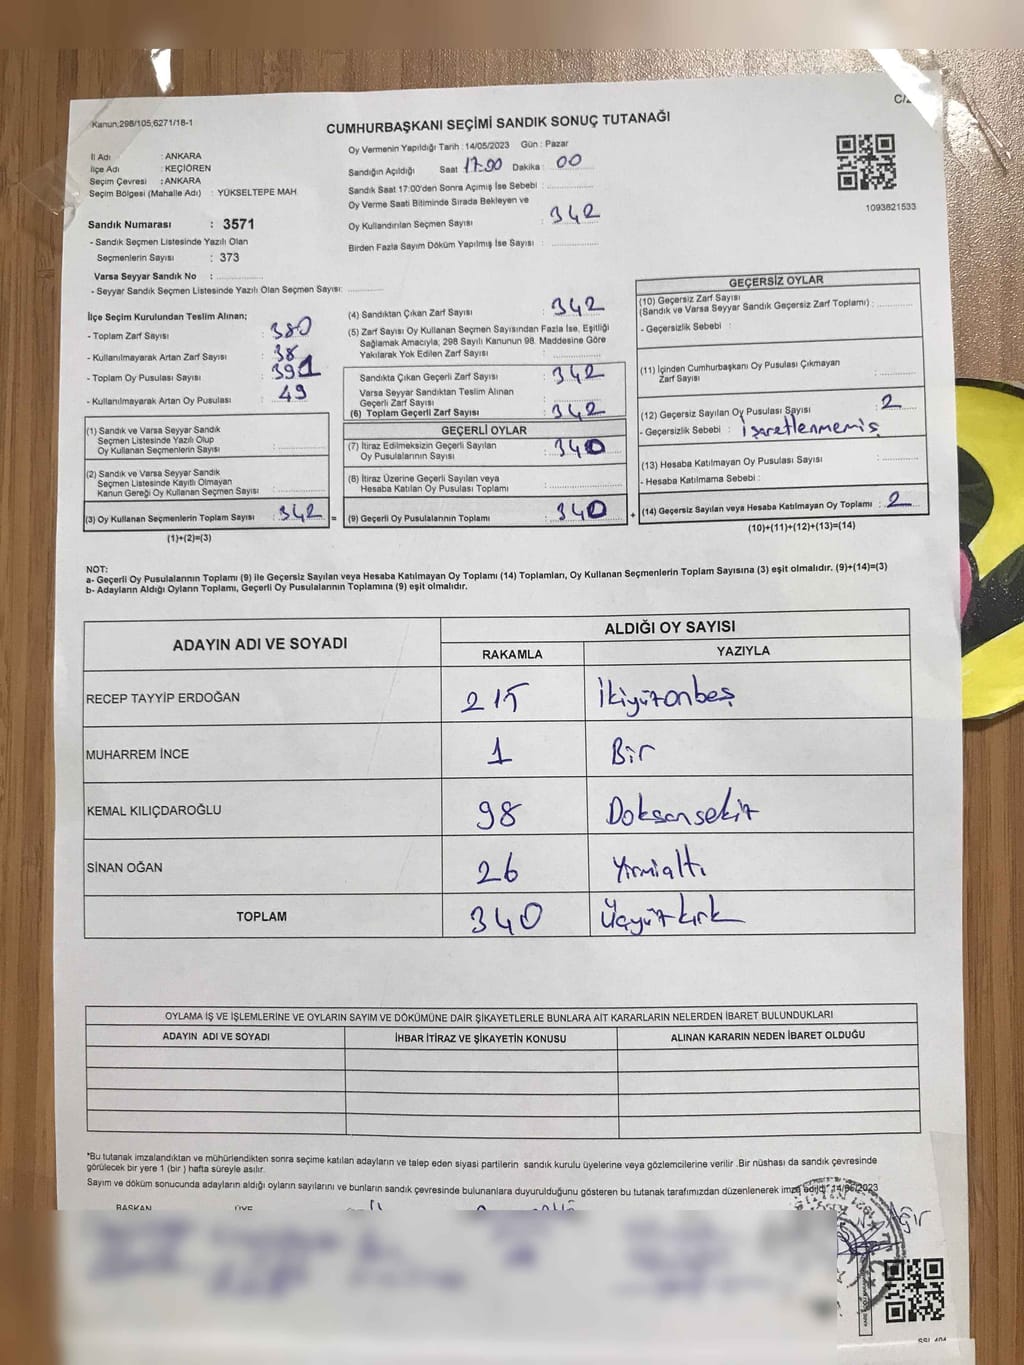 Kanun,298/105,6271/18-1
CUMHURBAŞKANI SEÇİMİ SANDIK SONUÇ TUTANAĞI
İl Adı : ANKARA
İlçe Adı : KEÇİÖREN
Seçim Çevresi : ANKARA
Seçim Bölgesi (Mahalle Adı) : YÜKSELTEPE MAH
Sandık Numarası : 3571
- Sandık Seçmen Listesinde Yazılı Olan
Seçmenlerin Sayısı : 373
Varsa Seyyar Sandık No :
- Seyyar Sandık Seçmen Listesinde Yazılı Olan Seçmen Sayısı:
Oy Vermenin Yapıldığı Tarih : 14/05/2023 Gün : Pazar
Sandığın Açıldığı Saat 17:00 Dakika : 00
Sandık Saat 17:00'den Sonra Açımış İse Sebebi :
Oy Verme Saati Bitiminde Sırada Bekleyen ve
Oy Kullandırılan Seçmen Sayısı : 342
Birden Fazla Sayım Döküm Yapılmış İse Sayısı :
1093821533
İlçe Seçim Kurulundan Teslim Alınan;
- Toplam Zarf Sayısı : 380
- Kullanılmayarak Artan Zarf Sayısı : 38
- Toplam Oy Pusulası Sayısı : 391
- Kullanılmayarak Artan Oy Pusulası : 49
(1) Sandık ve Varsa Seyyar Sandık
Seçmen Listesinde Yazılı Olup
Oy Kullanan Seçmenlerin Sayısı :
(2) Sandık ve Varsa Seyyar Sandık
Seçmen Listesinde Kayıtlı Olmayan
Kanun Gereği Oy Kullanan Seçmen Sayısı :
(3) Oy Kullanan Seçmenlerin Toplam Sayısı : 342 =
(1)+(2)=(3)
(4) Sandıktan Çıkan Zarf Sayısı : 342
(5) Zarf Sayısı Oy Kullanan Seçmen Sayısından Fazla İse, Eşitliği
Sağlamak Amacıyla; 298 Sayılı Kanunun 98. Maddesine Göre
Yakılarak Yok Edilen Zarf Sayısı :
Sandıkta Çıkan Geçerli Zarf Sayısı : 342
Varsa Seyyar Sandıktan Teslim Alınan
Geçerli Zarf Sayısı :
(6) Toplam Geçerli Zarf Sayısı : 342
GEÇERLİ OYLAR
(7) İtiraz Edilmeksizin Geçerli Sayılan
Oy Pusulalarının Sayısı : 340
(8) İtiraz Üzerine Geçerli Sayılan veya
Hesaba Katılan Oy Pusulası Toplamı :
(9) Geçerli Oy Pusulalarının Toplamı : 340 +
GEÇERSİZ OYLAR
(10) Geçersiz Zarf Sayısı
(Sandık ve Varsa Seyyar Sandık Geçersiz Zarf Toplamı) :
- Geçersizlik Sebebi :
(11) İçinden Cumhurbaşkanı Oy Pusulası Çıkmayan
Zarf Sayısı :
(12) Geçersiz Sayılan Oy Pusulası Sayısı : 2
- Geçersizlik Sebebi : İşaretlenmemiş
(13) Hesaba Katılmayan Oy Pusulası Sayısı :
- Hesaba Katılmama Sebebi :
(14) Geçersiz Sayılan veya Hesaba Katılmayan Oy Toplamı : 2
(10)+(11)+(12)+(13)=(14)
NOT:
a- Geçerli Oy Pusulalarının Toplamı (9) ile Geçersiz Sayılan veya Hesaba Katılmayan Oy Toplamı (14) Toplamları, Oy Kullanan Seçmenlerin Toplam Sayısına (3) eşit olmalıdır. (9)+(14)=(3)
b- Adayların Aldığı Oyların Toplamı, Geçerli Oy Pusulalarının Toplamına (9) eşit olmalıdır.
ADAYIN ADI VE SOYADI ALDIĞI OY SAYISI
RAKAMLA YAZIYLA
RECEP TAYYİP ERDOĞAN 215 İkiyüzonbeş
MUHARREM İNCE 1 Bir
KEMAL KILIÇDAROĞLU 98 Doksansekiz
SİNAN OĞAN 26 Yirmialtı
TOPLAM 340 Üçyüzkırk
OYLAMA İŞ VE İŞLEMLERİNE VE OYLARIN SAYIM VE DÖKÜMÜNE DAİR ŞİKAYETLERLE BUNLARA AİT KARARLARIN NELERDEN İBARET BULUNDUKLARI
ADAYIN ADI VE SOYADI İHBAR İTİRAZ VE ŞİKAYETİN KONUSU ALINAN KARARIN NEDEN İBARET OLDUĞU
*Bu tutanak imzalandıktan ve mühürlendikten sonra seçime katılan adayların ve talep eden siyasi partilerin sandık kurulu üyelerine veya gözlemcilerine verilir .Bir nüshası da sandık çevresinde
görülecek bir yere 1 (bir ) hafta süreyle asılır.
Sayım ve döküm sonucunda adayların aldığı oyların sayılarını ve bunların sandık çevresinde bulunanlara duyurulduğunu gösteren bu tutanak tarafımızdan düzenlenerek imza edildi. 14/05/2023
BAŞKAN ÜYE